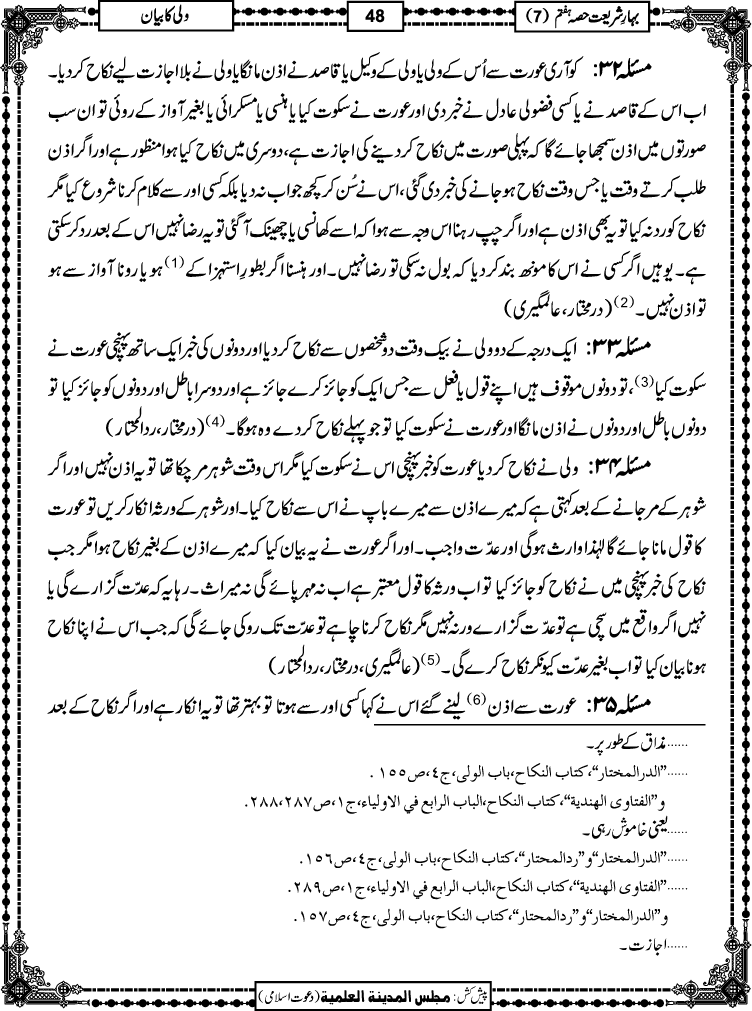 بہارِ شریعت حصہ ہفتم (7)
48
ولی کا بیان
مسئلہ ۳۲: کوآری عورت سے اُس کے ولی یا ولی کے وکیل یا قاصد نے اذن مانگا یا ولی نے بلا اجازت لیے نکاح کر دیا۔
اب اس کے قاصد نے یا کسی فضولی عادل نے خبر دی اور عورت نے سکوت کیا یا ہنسی یا مسکرائی یا بغیر آواز کے روئی تو ان سب
صورتوں میں اذن سمجھا جائے گا کہ پہلی صورت میں نکاح کر دینے کی اجازت ہے، دوسری میں نکاح کیا ہوا منظور ہے اور اگر اذن
طلب کرتے وقت یا جس وقت نکاح ہو جانے کی خبر دی گئی، اس نے سُن کر کچھ جواب نہ دیا بلکہ کسی اور سے کلام کرنا شروع کیا مگر
نکاح کو رد نہ کیا تو یہ بھی اذن ہے اور اگر چپ رہنا اس وجہ سے ہوا کہ اسے کھانسی یا چھینک آگئی تو یہ رضا نہیں اس کے بعد رد کر سکتی
ہے۔ یوہیں اگر کسی نے اس کا مونھ بند کر دیا کہ بول نہ سکی تو رضا نہیں۔ اور ہنسنا اگر بطورِ استہزا کے (1) ہو یا رونا آواز سے ہو
تو اذن نہیں۔ (2) (درمختار، عالمگیری)
مسئلہ ۳۳: ایک درجہ کے دو ولی نے بیک وقت دو شخصوں سے نکاح کر دیا اور دونوں کی خبر ایک ساتھ پہنچی عورت نے
سکوت کیا (3)، تو دونوں موقوف ہیں اپنے قول یا فعل سے جس ایک کو جائز کرے جائز ہے اور دوسرا باطل اور دونوں کو جائز کیا تو
دونوں باطل اور دونوں نے اذن مانگا اور عورت نے سکوت کیا تو جو پہلے نکاح کر دے وہ ہوگا۔ (4) (درمختار، ردالمحتار)
مسئلہ ۳۴: ولی نے نکاح کر دیا عورت کو خبر پہنچی اس نے سکوت کیا مگر اس وقت شوہر مر چکا تھا تو یہ اذن نہیں اور اگر
شوہر کے مر جانے کے بعد کہتی ہے کہ میرے اذن سے میرے باپ نے اس سے نکاح کیا۔ اور شوہر کے ورثہ انکار کریں تو عورت
کا قول مانا جائے گا لہٰذا وارث ہوگی اور عدّت واجب۔ اور اگر عورت نے یہ بیان کیا کہ میرے اذن کے بغیر نکاح ہوا مگر جب
نکاح کی خبر پہنچی میں نے نکاح کو جائز کیا تو اب ورثہ کا قول معتبر ہے اب نہ مہر پائے گی نہ میراث۔ رہا یہ کہ عدّت گزارے گی یا
نہیں اگر واقع میں سچی ہے تو عدّت گزارے ورنہ نہیں مگر نکاح کرنا چاہے تو عدّت تک روکی جائے گی کہ جب اس نے اپنا نکاح
ہونا بیان کیا تو اب بغیر عدّت کیونکر نکاح کرے گی۔ (5) (عالمگیری، درمختار، ردالمحتار)
مسئلہ ۳۵: عورت سے اذن (6) لینے گئے اس نے کہا کسی اور سے ہوتا تو بہتر تھا تو یہ انکار ہے اور اگر نکاح کے بعد
......مذاق کے طور پر۔
......"الدرالمختار"، کتاب النکاح، باب الولی، ج٤، ص١٥٥.
و"الفتاوی الهندية"، کتاب النکاح، الباب الرابع في الاولیاء، ج١، ص٢٨٧،٢٨٨.
......یعنی خاموش رہی۔
......"الدرالمختار" و"ردالمحتار"، کتاب النکاح، باب الولی، ج٤، ص١٥٦.
......"الفتاوی الهندية"، کتاب النکاح، الباب الرابع في الاولیاء، ج١، ص٢٨٩.
و"الدرالمختار" و"ردالمحتار"، کتاب النکاح، باب الولی، ج٤، ص١٥٧.
......اجازت۔
پیش کش: مجلس المدینة العلمیة (دعوت اسلامی)